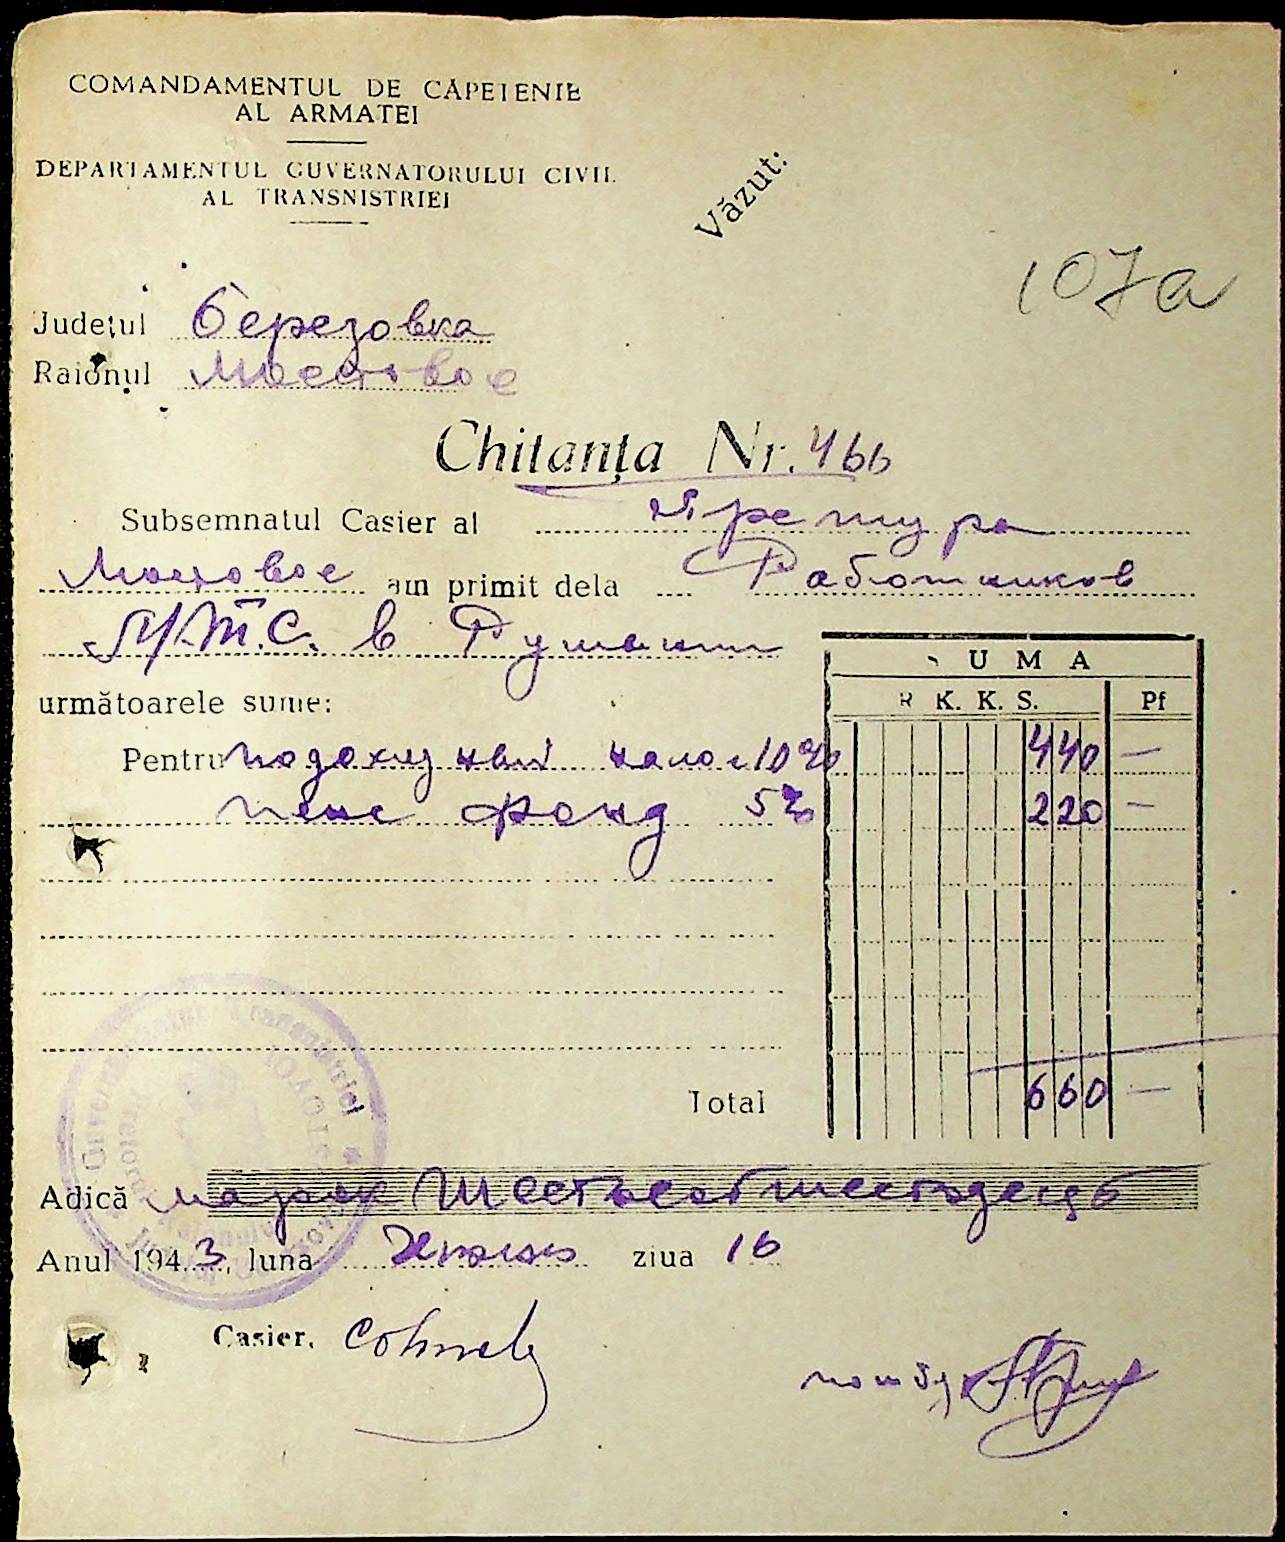 COMANDAMENTUL DE CĂPETENIE
AL ARMATEI
DEPARTAMENTUL GUVERNATORULUI CIVIL
AL TRANSNISTRIEI
Văzut:
107a
Județul Березовка
Raionul Мостовое
Chitanța Nr. 466
Subsemnatul Casier al Претура
Мостовое am primit dela Работников
М.Т.С. в Румынии
următoarele sume:
SUMA
R. K. K. S. Pf
Pentru подоходный налог 10% 440 —
пенс фонд 5% 220 —
Total 660 —
Adică марок Шестьсот шестьдесят
Anul 1943, luna Июнь ziua 16
Casier,
Guvernământul Transnistriei